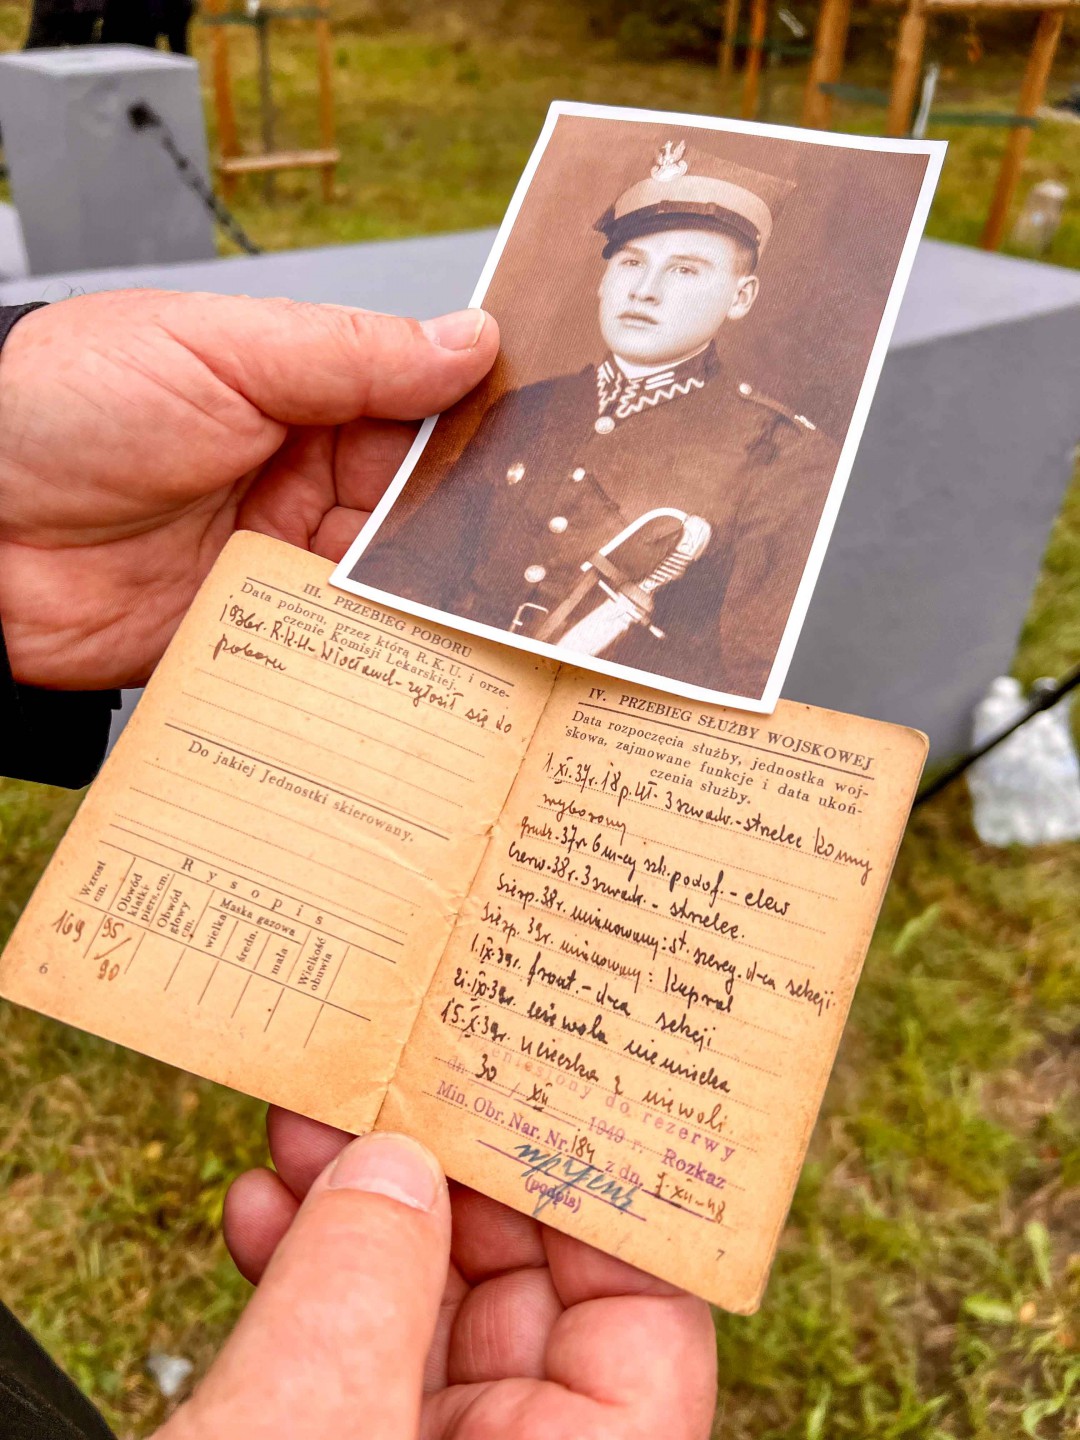 III. PRZEBIEG POBORU
Data poboru, przez którą R. K. U. i orze-
czenie Komisji Lekarskiej.
1936r. R.K.U-Włocławek-zgłosił się do
poboru
Do jakiej Jednostki skierowany.
Rysopis
Wzrost cm.
Obwód klatki piers. cm.
Obwód głowy cm.
Maska gazowa
wielka
średn.
mała
Wielkość obuwia
169
95/90
6
IV. PRZEBIEG SŁUŻBY WOJSKOWEJ
Data rozpoczęcia służby, jednostka woj-
skowa, zajmowane funkcje i data ukoń-
czenia służby.
1.XI.37r. 18 p.Uł. 3 szwadr.-strzelec konny
wyborowy
grudz.37r 6 m-cy szk.podof. - elew
czerw.38r. 3 szwadr. - strzelec.
sierp.38r. mianowany: st. szereg. d-ca sekcji.
sierp. 39r. mianowany: kapral
1.IX.39r. front.- d-ca sekcji
21.IX.39r. niewola niemiecka
15.X.39r. ucieczka z niewoli.
Przeniesiony do rezerwy
dn. 30 / XII 1949 r. Rozkaz
Min. Obr. Nar. Nr. 184 z dn. 7-XII-48
(podpis)
7